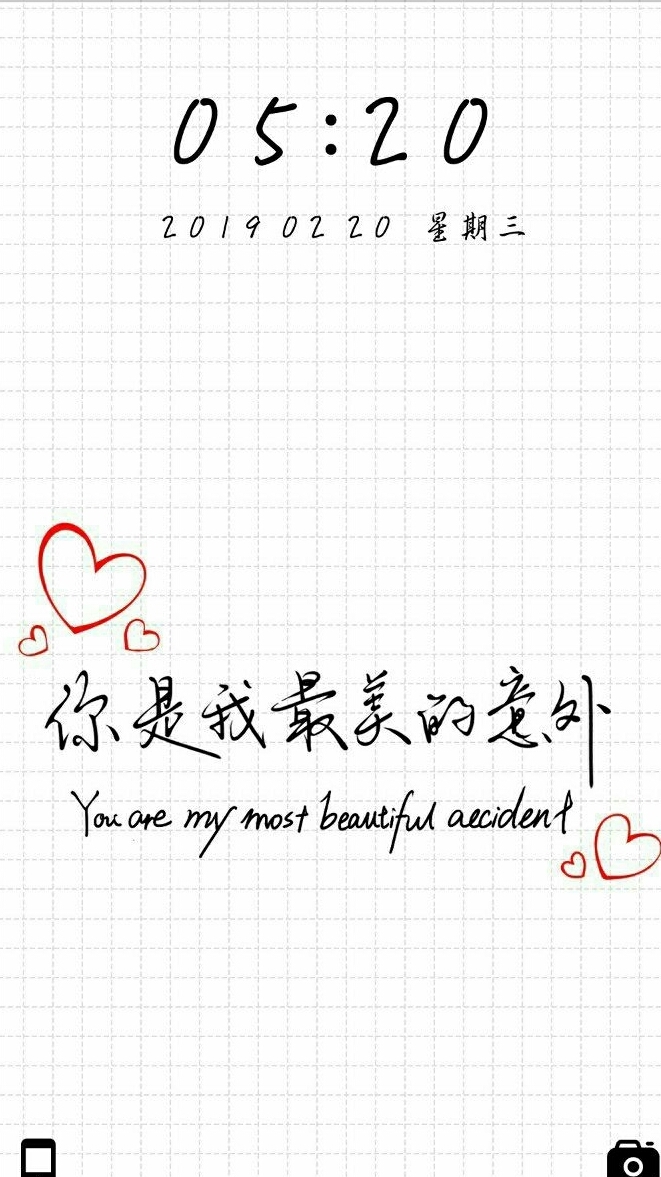 05:20
2019 02 20 星期三
你是我最美的意外
You are my most beautiful accident